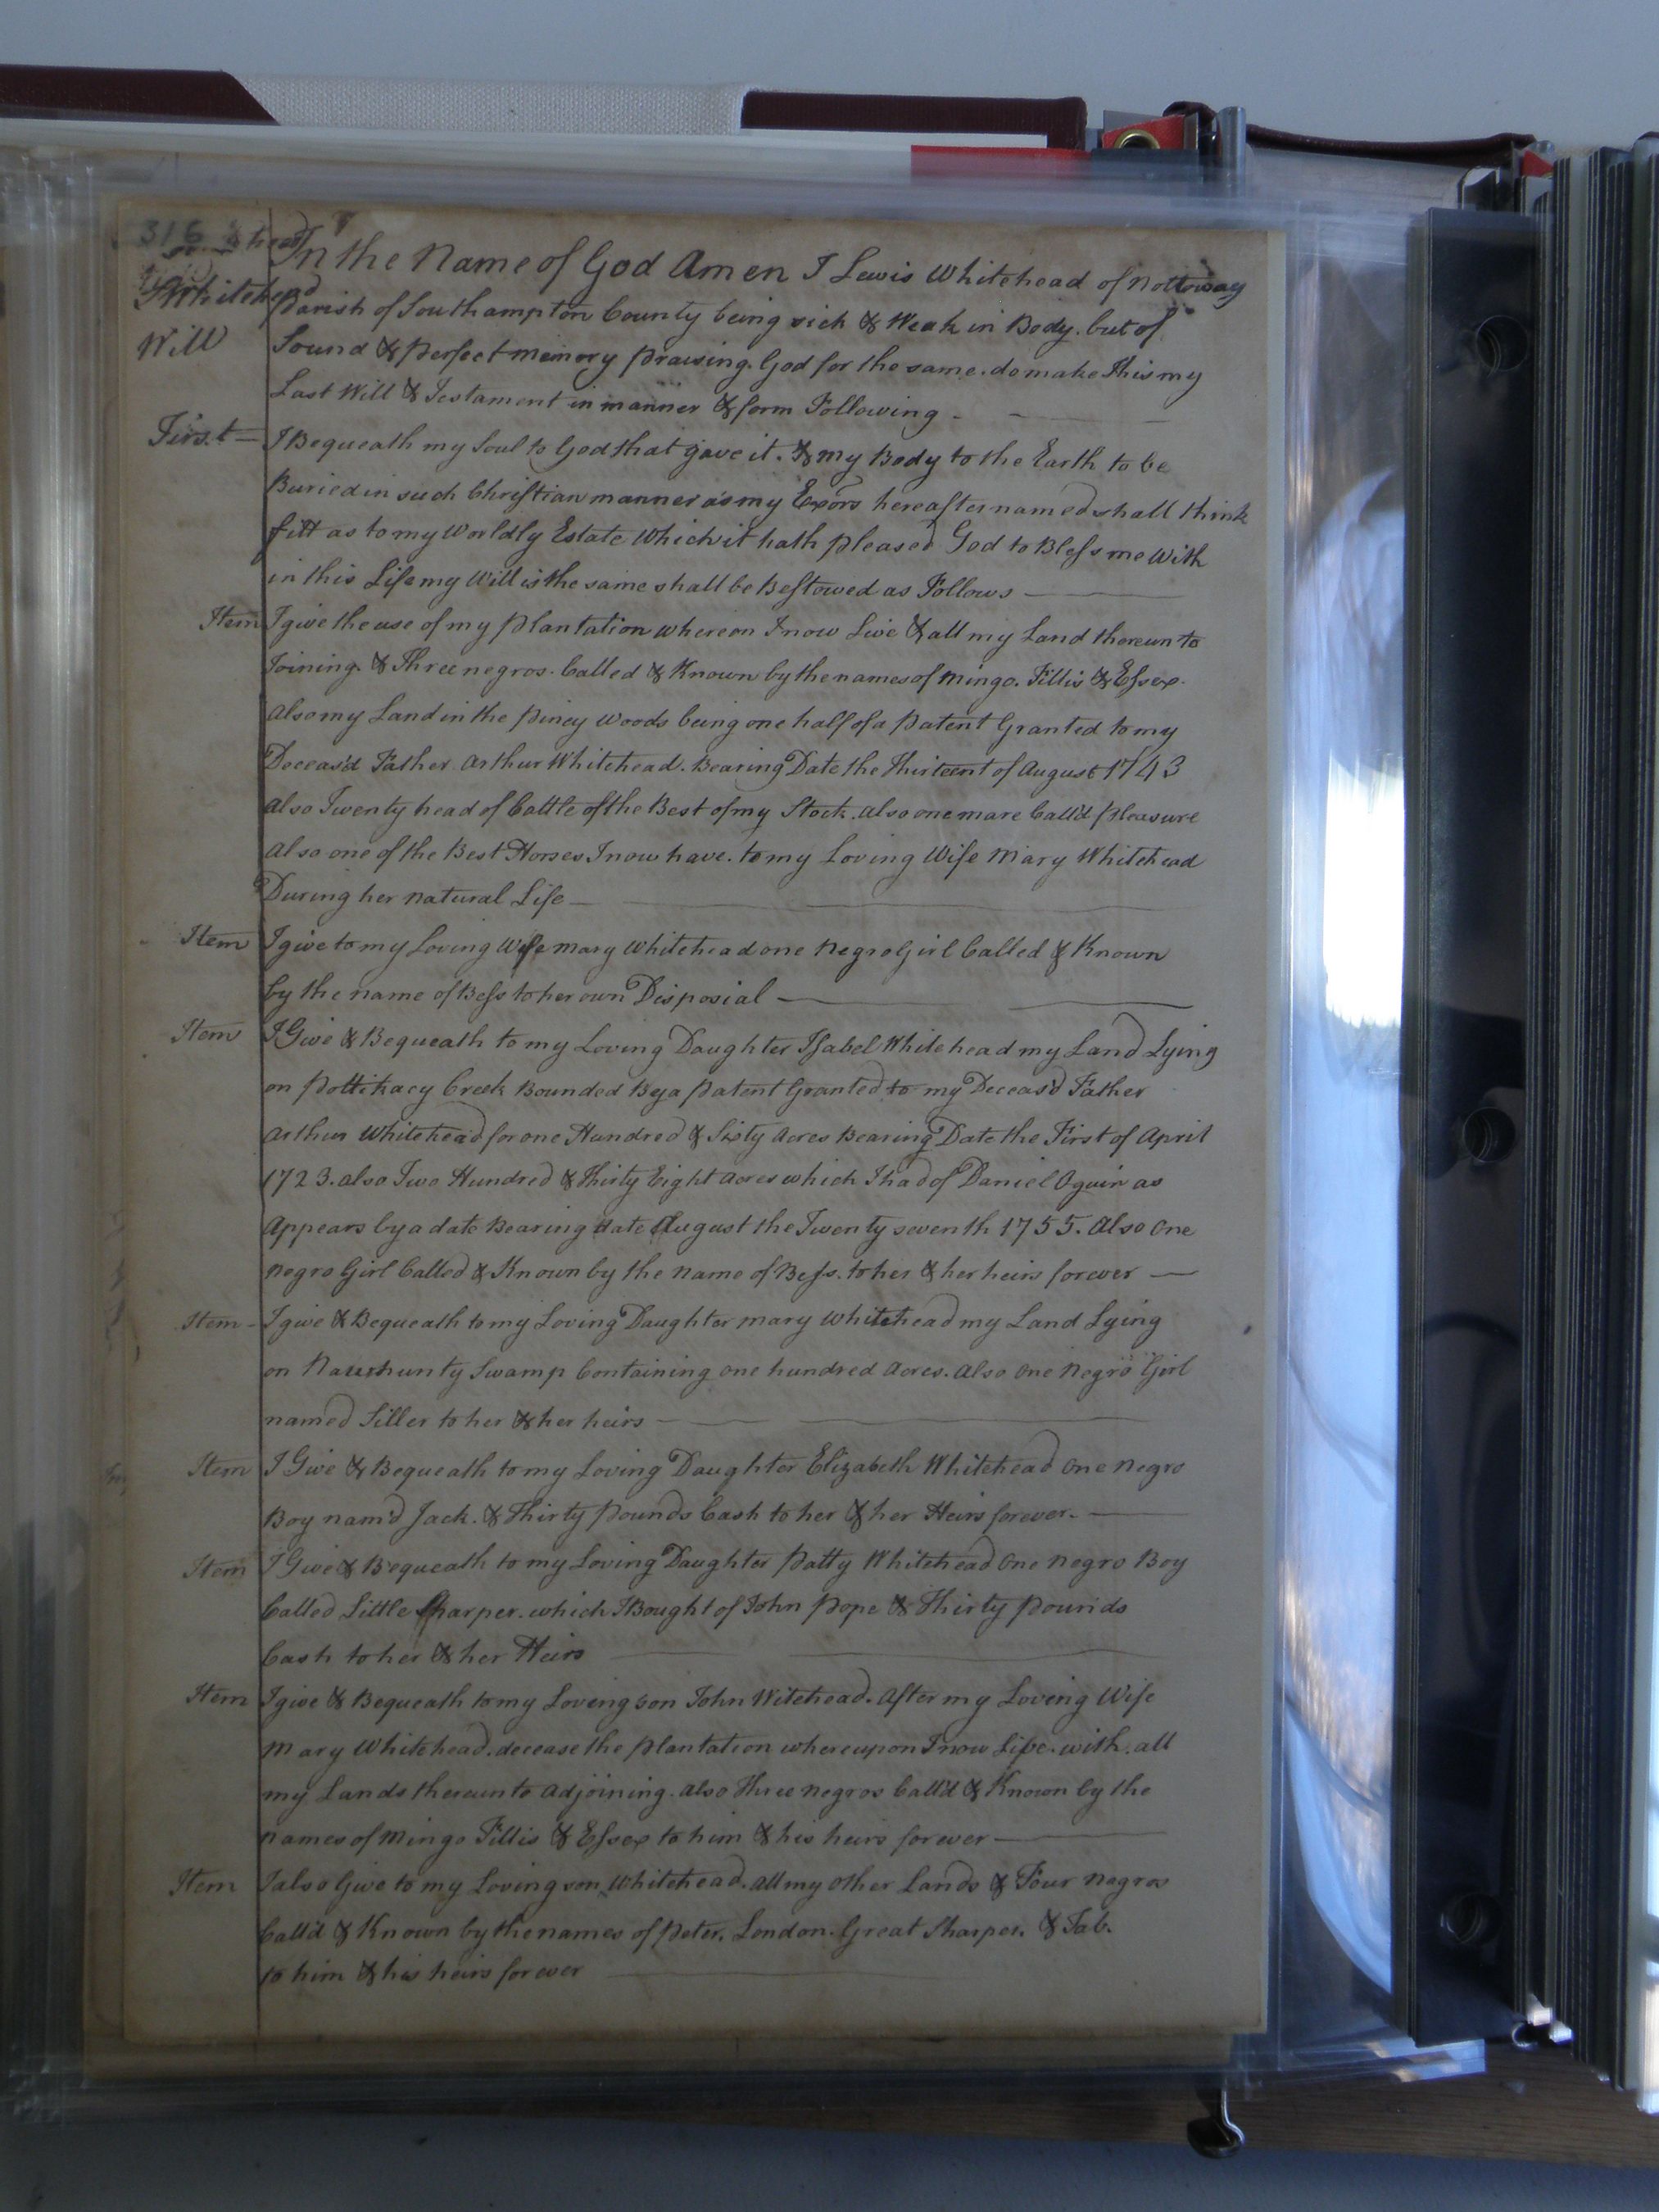 316
Whitehead
Will
In the Name of God Amen I Lewis Whitehead of Nottoway
Parish of Southampton County being sick & Weak in Body. but of
Sound & perfect memory praising. God for the same. do make This my
Last Will & Testament in manner & form Following -
First = I Bequeath my Soul to God that gave it. & my Body to the Earth to be
Buried in such Christian manner as my Exors hereafter named shall think
fitt as to my Worldly Estate Which it hath pleased God to Bless me With
in this Life my Will is the same shall be Bestowed as Follows
Item I give the use of my plantation whereon I now Live & all my Land thereunto
Joining. & Three negros. Called & Known by the names of Mingo. Fillis & Essex.
Also my Land in the piney Woods being one half of a patent Granted to my
Deceas'd Father Arthur Whitehead. Bearing Date the Thirteent of August 1743
also Twenty head of Cattle of the Best of my Stock. also one mare Call'd pleasure
Also one of the Best Horses I now have. to my Loving Wife Mary Whitehead
During her natural Life
Item I give to my Loving Wife mary Whitehead one Negro Girl Called & Known
by the name of Bess to her own Disposial
Item I Give & Bequeath to my Loving Daughter Isabel Whitehead my Land Lying
on pottikacy Creek Bounded By a patent Granted to my Deceas'd Father
Arthur Whitehead for one Hundred & Sixty Acres Bearing Date the First of April
1723. also Two Hundred & Thirty Eight Acres which I had of Daniel Oguin as
Appears by a date Bearing date August the Twenty seventh 1755. Also One
negro Girl Called & Known by the name of Bess. to her & her heirs forever
Item - I give & Bequeath to my Loving Daughter mary Whitehead my Land Lying
on Nauhunty Swamp Containing one hundred Acres. also one Negro Girl
named Siller to her & her heirs
Item I Give & Bequeath to my Loving Daughter Elizabeth Whitehead one negro
Boy nam'd Jack. & Thirty pounds Cash to her & her Heirs forever.
Item I Give & Bequeath to my Loving Daughter patty Whitehead one negro Boy
Called Little Sharper. which I Bought of John pope & Thirty pounds
Cash to her & her Heirs
Item I give & Bequeath to my Loveng son John Witehead. After my Loving Wife
Mary Whitehead. decease the plantation whereupon I now Live. with. all
my Lands thereunto adjoining. also Three negros Call'd & Known by the
names of Mingo Fillis & Essex to him & his heirs forever
Item I also Give to my Loving son Whitehead. all my other Lands & Four negros
Call'd & Known by the names of peter. London. Great Sharper. & Tab.
to him & his heirs forever